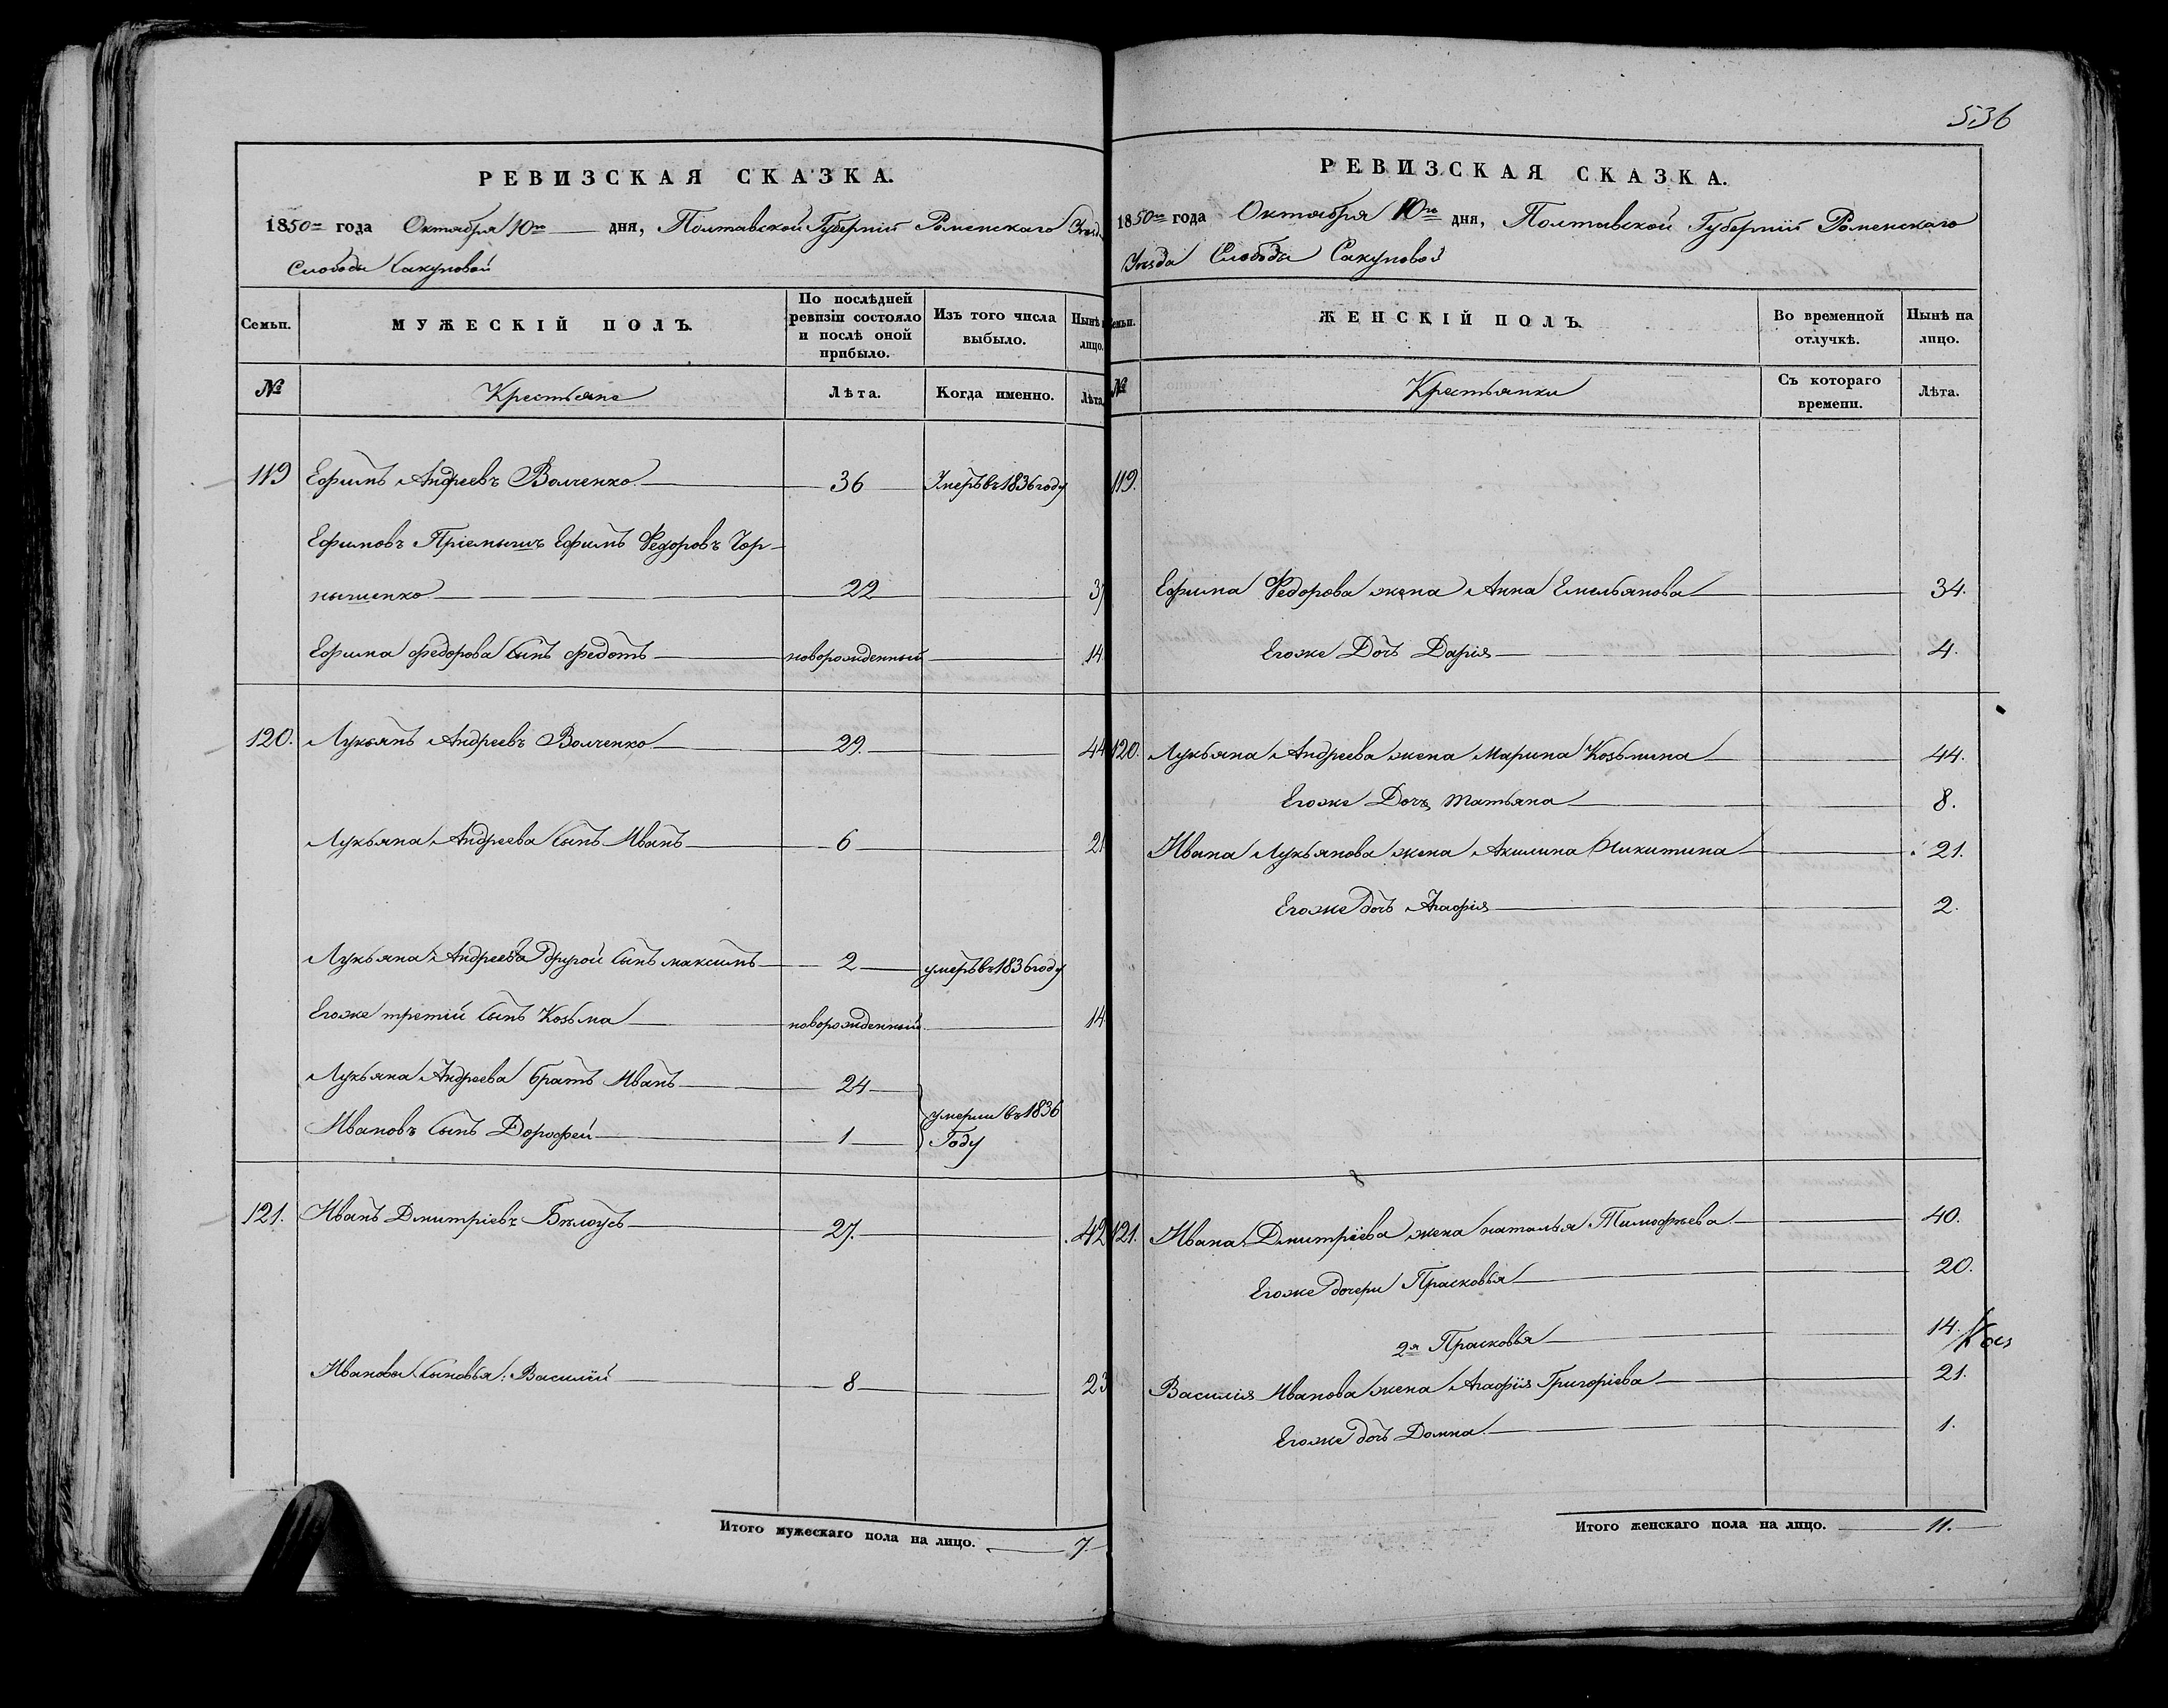 РЕВИЗСКАЯ СКАЗКА.
1850го года Октября 10го дня, Полтавской Губерніи Роменскаго Уезда
Слободы Сакуновой
Семьи.
МУЖЕСКІЙ ПОЛЪ.
По послѣдней ревизіи состояло и послѣ оной прибыло.
Изъ того числа выбыло.
Нынѣ на лицо.
№
Крестьяне
Лѣта.
Когда именно.
Лѣта.
119 Ефимъ Андреевъ Волченко 36 Умеръ въ 1836 году
Ефимовъ Пріемышъ Ефимъ Федоровъ Чор-
нышенко 22 37
Ефима Федорова Сынъ Федотъ новорожденный 14
120. Лукьянъ Андреевъ Волченко 29. 44
Лукьяна Андреева Сынъ Иванъ 6 21
Лукьяна Андреева другой Сынъ максимъ 2 умеръ въ 1836 году
Егоже третій Сынъ Козьма новорожденный 14
Лукьяна Андреева братъ Иванъ 24
Ивановъ Сынъ Дорофей 1
умерли въ 1836
Году
121. Иванъ Дмитріевъ Бѣлоусъ 27. 42
Ивановы Сыновья: Василій 8 23
Итого мужескаго пола на лицо. 7.
536
РЕВИЗСКАЯ СКАЗКА.
1850го года Октября 10го дня, Полтавской Губерніи Роменскаго
Уезда Слободы Сакуновой
Семьи.
ЖЕНСКІЙ ПОЛЪ.
Во временной отлучкѣ.
Нынѣ на лицо.
№
Крестьянки
Съ котораго времени.
Лѣта.
119.
Ефима Федорова жена Анна Емельянова 34.
Егоже Дочь Дарія 4.
120. Лукьяна Андреева жена Марина Козьмина 44.
Егоже Дочь Татьяна 8.
Ивана Лукьянова жена Акилина Никитина 21.
Егоже дочь Агафія 2.
121. Ивана Дмитріева жена наталья Тимофѣева 40.
Егоже дочери Прасковья 20.
2я Прасковья 14.
Василія Иванова жена Агафія Григоріева 21.
Егоже дочь Домна 1.
Итого женскаго пола на лицо. 11.